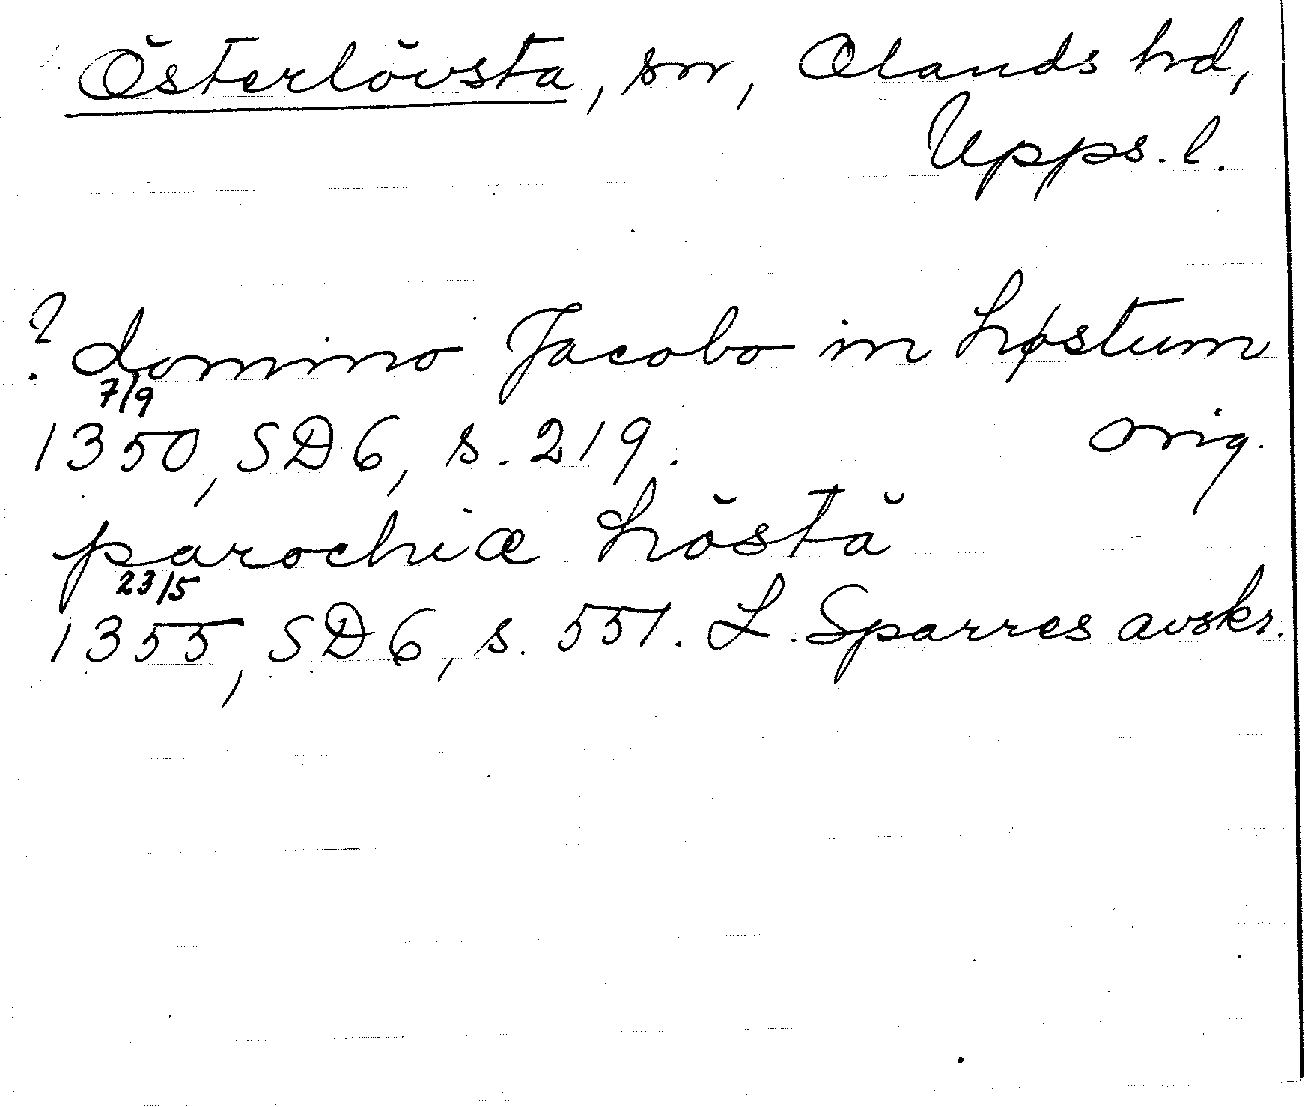 Österlövsta, sn, Olands hd,
Upps. l.
? domino Jacobo in Løstum
7/9
1350, SD 6, s. 219. orig.
parochiæ Löstä
23/5
1355, SD 6, s. 551. L. Sparres avskr.